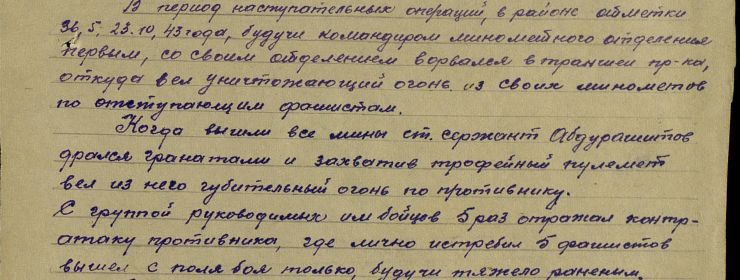 В период наступательных операций, в районе отметки
36,5, 23.10,43 года, будучи командиром минометного отделения
первым, со своим отделением ворвался в траншеи пр-ка,
откуда вел уничтожающий огонь из своих минометов
по отступающим фашистам.
Когда вышли все мины ст. сержант Абдурашитов
дрался гранатами и захватив трофейный пулемет
вел из него губительный огонь по противнику.
С группой руководимых им бойцов 5 раз отражал контр-
атаку противника, где лично истребил 5 фашистов
вышел с поля боя только, будучи тяжело раненим.